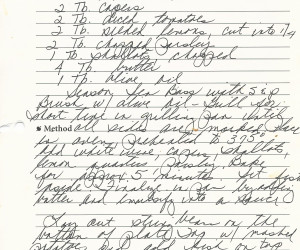 2 Tb. capers
2 Tb. diced tomatoes
2 Tb. peeled lemons, cut into 1/4
2 Tb. chopped parsley
1 Tb shallots, chopped
4 Tb butter
1 Tb. olive oil
Season Sea Bass with S & P
Brush w/ olive oil - Grill for
short time in grilling pan until
Method all sides are marked. Place
in oven preheated to 375°.
Add white wine, capers, shallots,
lemon quarters, parsley. Bake
for 4.5 minutes. Set fish
aside. Finalize in pan by adding
butter and emulsify into a sauce.
Lay out string beans on the
bottom of plate. Top w/ mashed
potatoes and fish on top